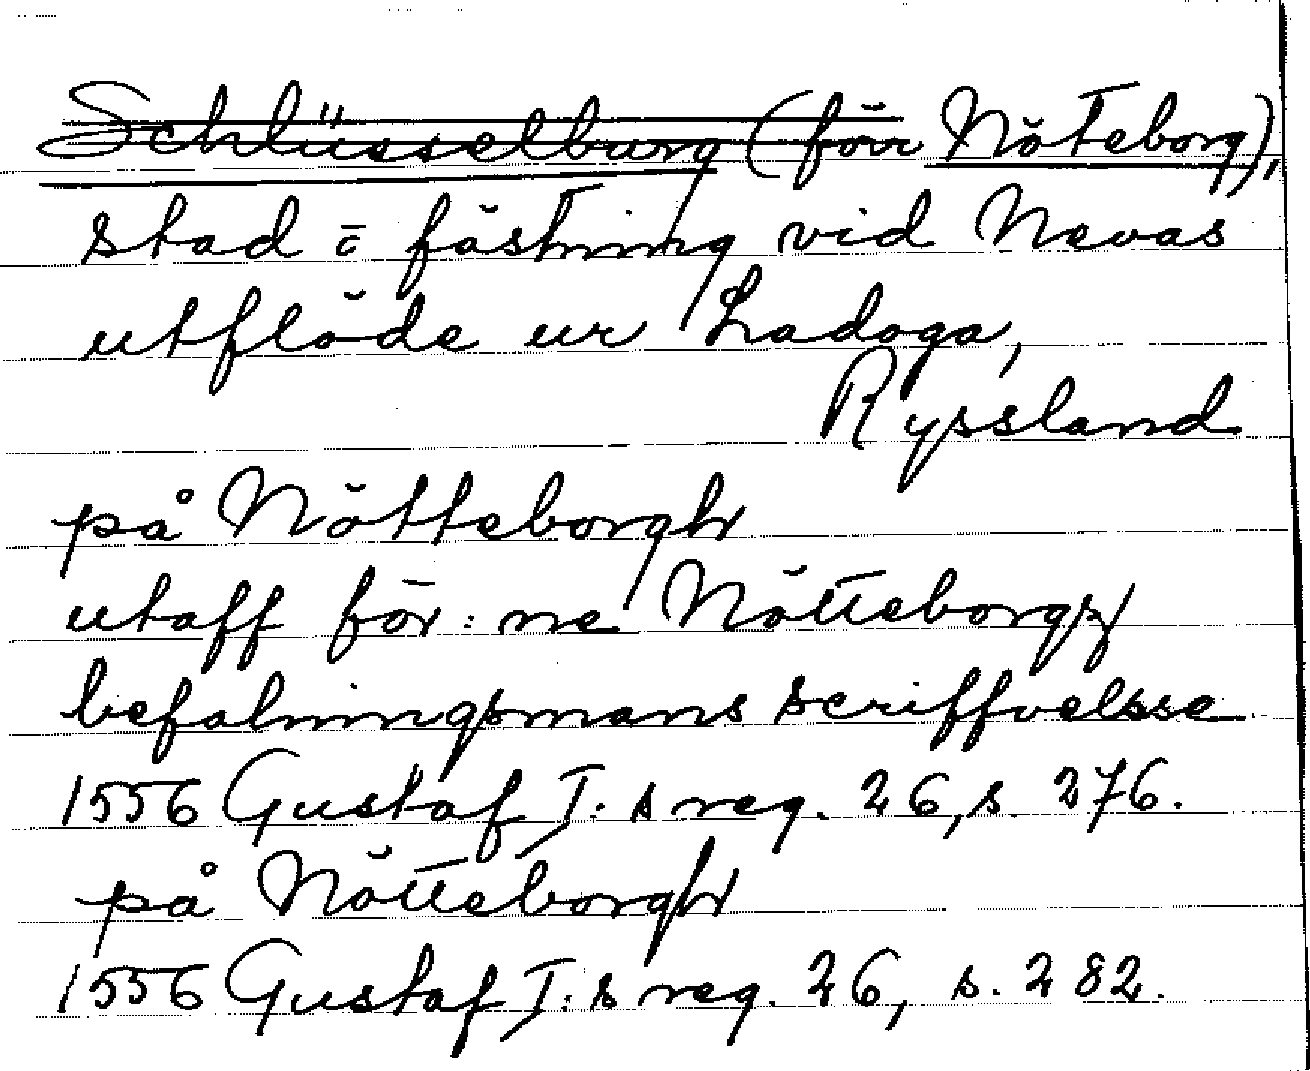 Schlüsselburg (förr Nöteborg),
stad o. fästning vid Nevas
utflöde ur Ladoga,
Ryssland
på Nötteborgh
utaff för:ne Nötteborgz
befalningsmans scriffvelsse
1556 Gustaf I:s reg. 26, s. 276.
på Nötteborgh
1556 Gustaf I:s reg. 26, s. 282.